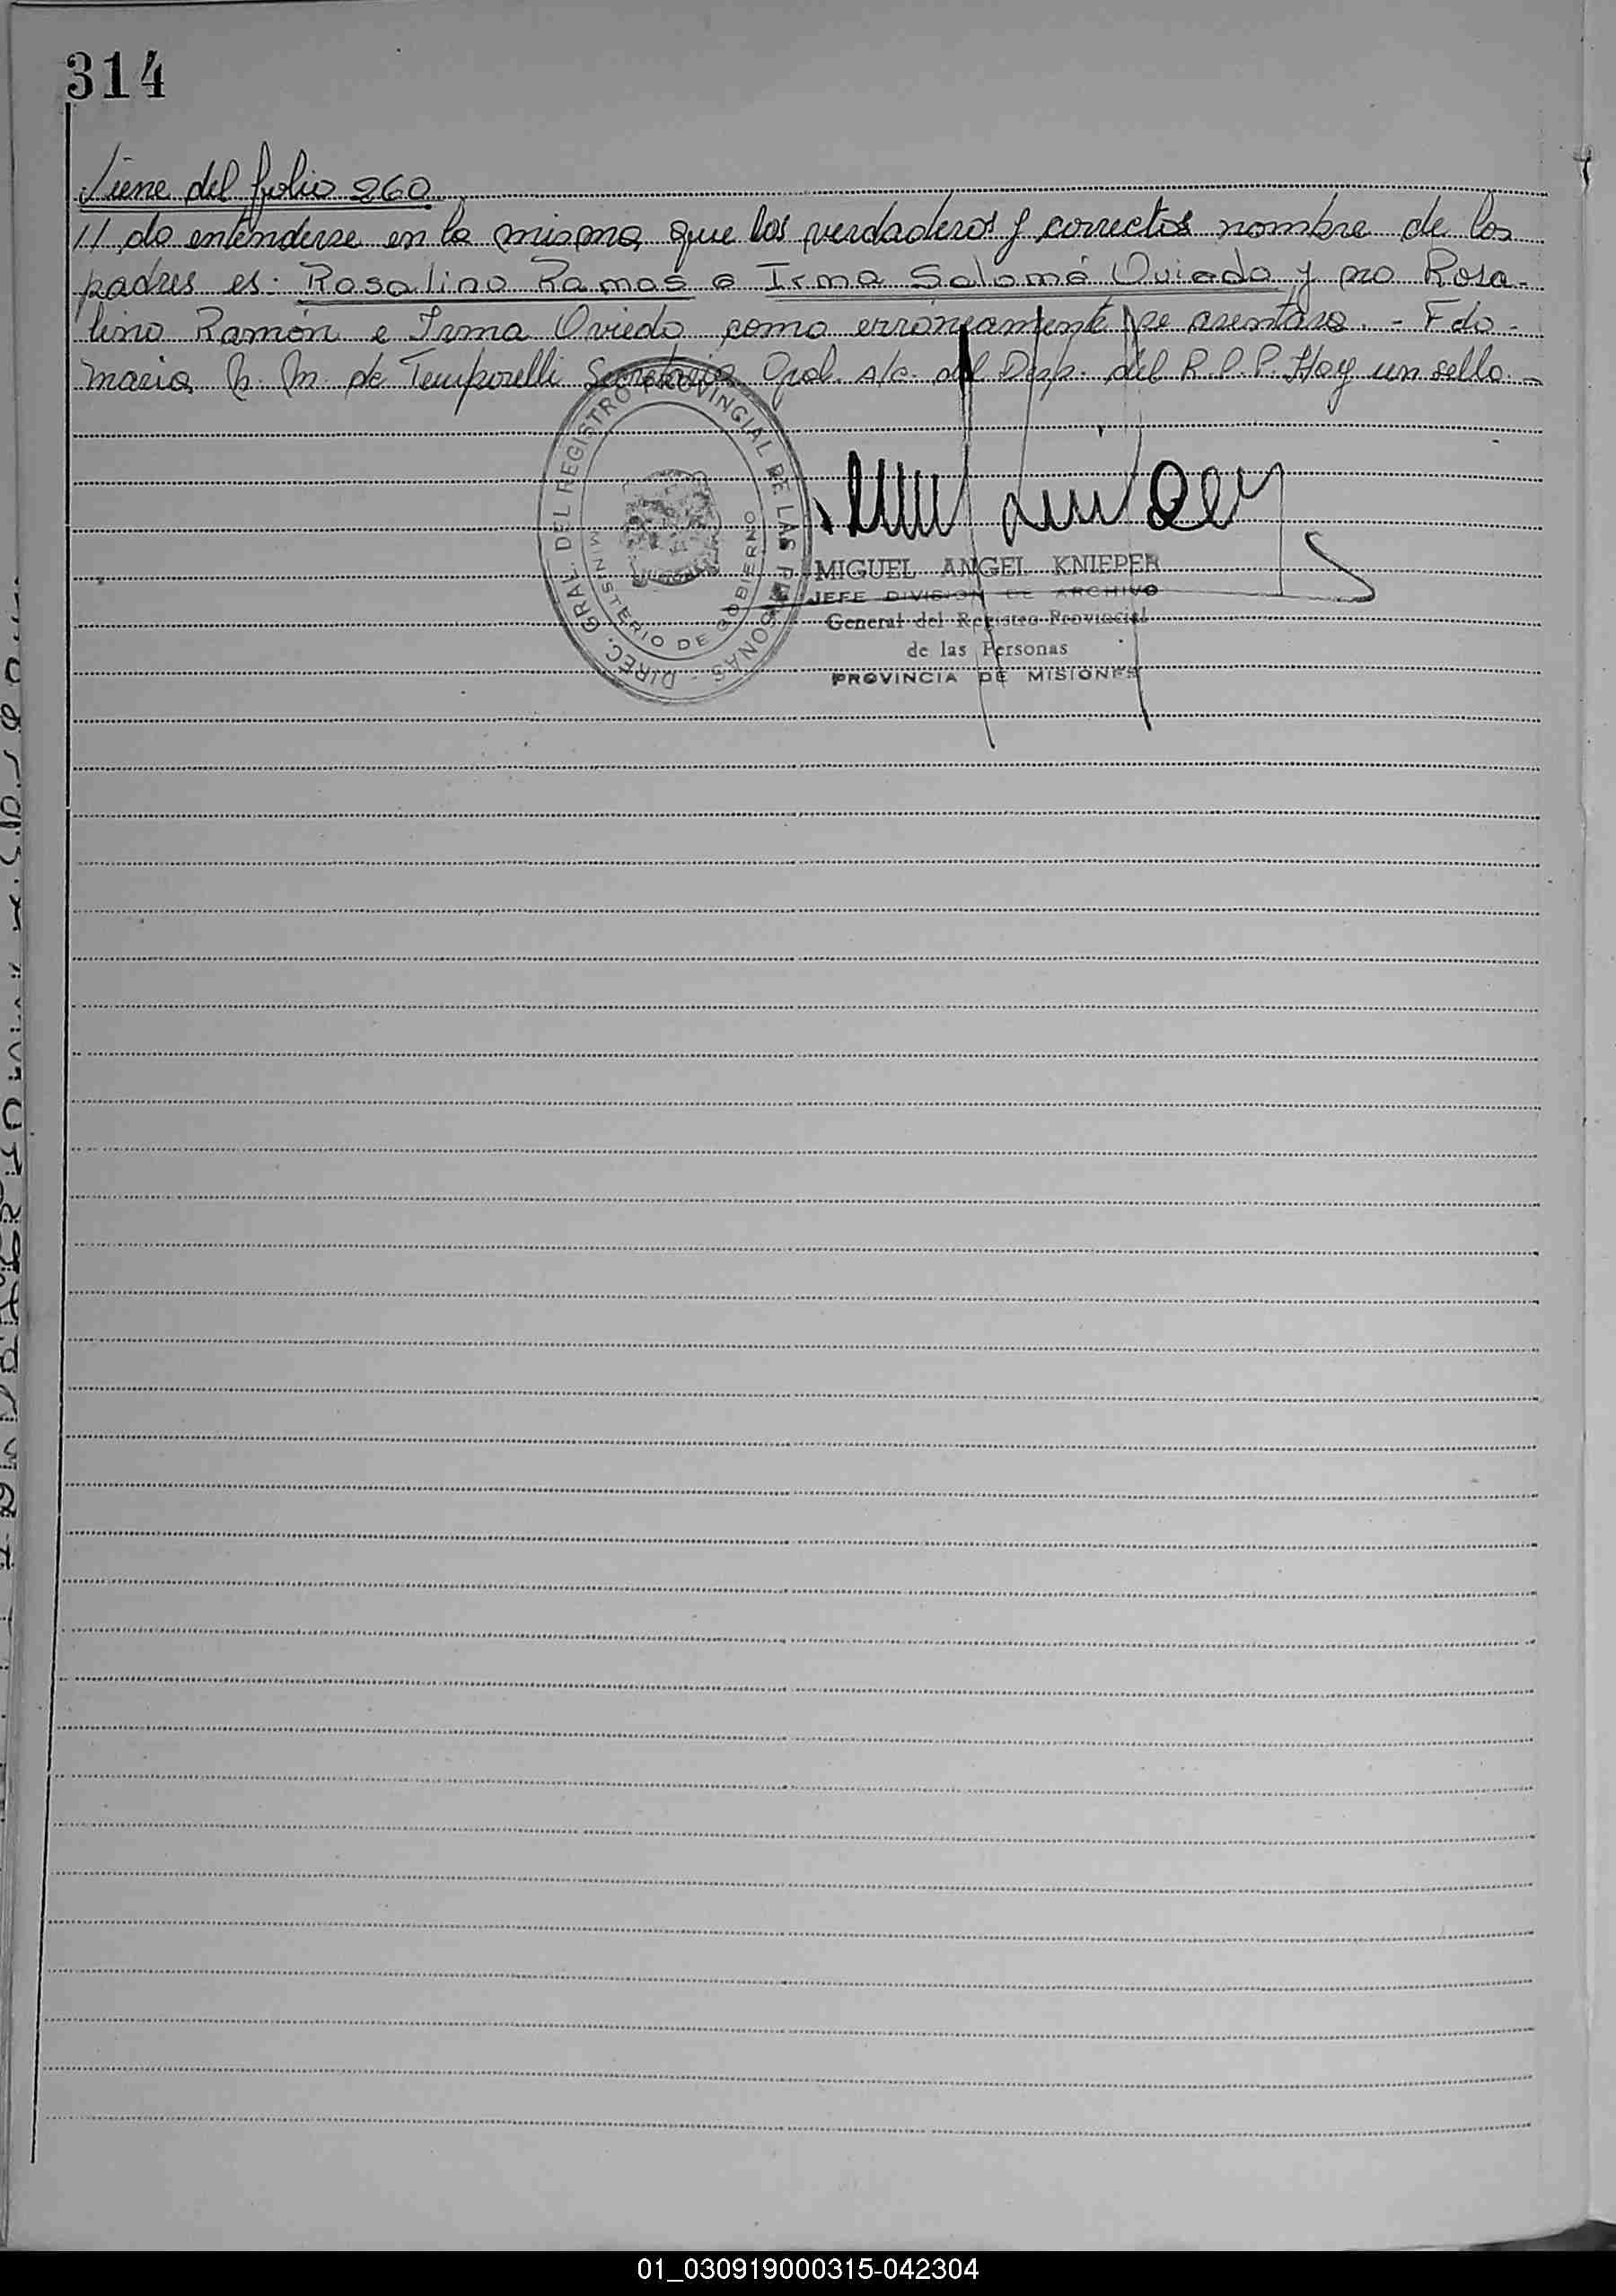 314
Viene del folio 260
// do entenderse en la misma que los verdaderos y correctos nombre de los
padres es: Rosalino Ramos e Irma Salomé Oviedo y no Rosa-
lino Ramón e Irma Oviedo como erróneamente se asentara. - Fdo -
Maria h. m. de Temporelli Secretaria Gral. a/c. del Desp. del R.P.P. Hay un sello. -
DIREC. GRAL. DEL REGISTRO PROVINCIAL DE LAS PERSONAS
MINISTERIO DE GOBIERNO
MIGUEL ANGEL KNIEPER
JEFE DIVISION DE ARCHIVO
General del Registro Provincial
de las Personas
PROVINCIA DE MISIONES
01_030919000315-042304